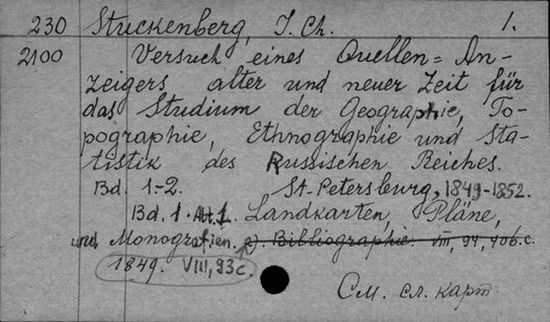 230 Stuckenberg, J. Ch. 1.
2100 Versuch eines Quellen=An-
zeigers alter und neuer Zeit für
das Studium der Geographie, To-
pographie, Ethnographie und Sta-
tistik des Russischen Reiches.
Bd. 1-2. St-Petersburg, 1849-1852.
Bd. 1. Abt. 1. Landkarten, Pläne,
und Monografien. 2). Bibliographie. VIII, 94, 406.c.
1849. VIII, 93c.
См. сл. карт.